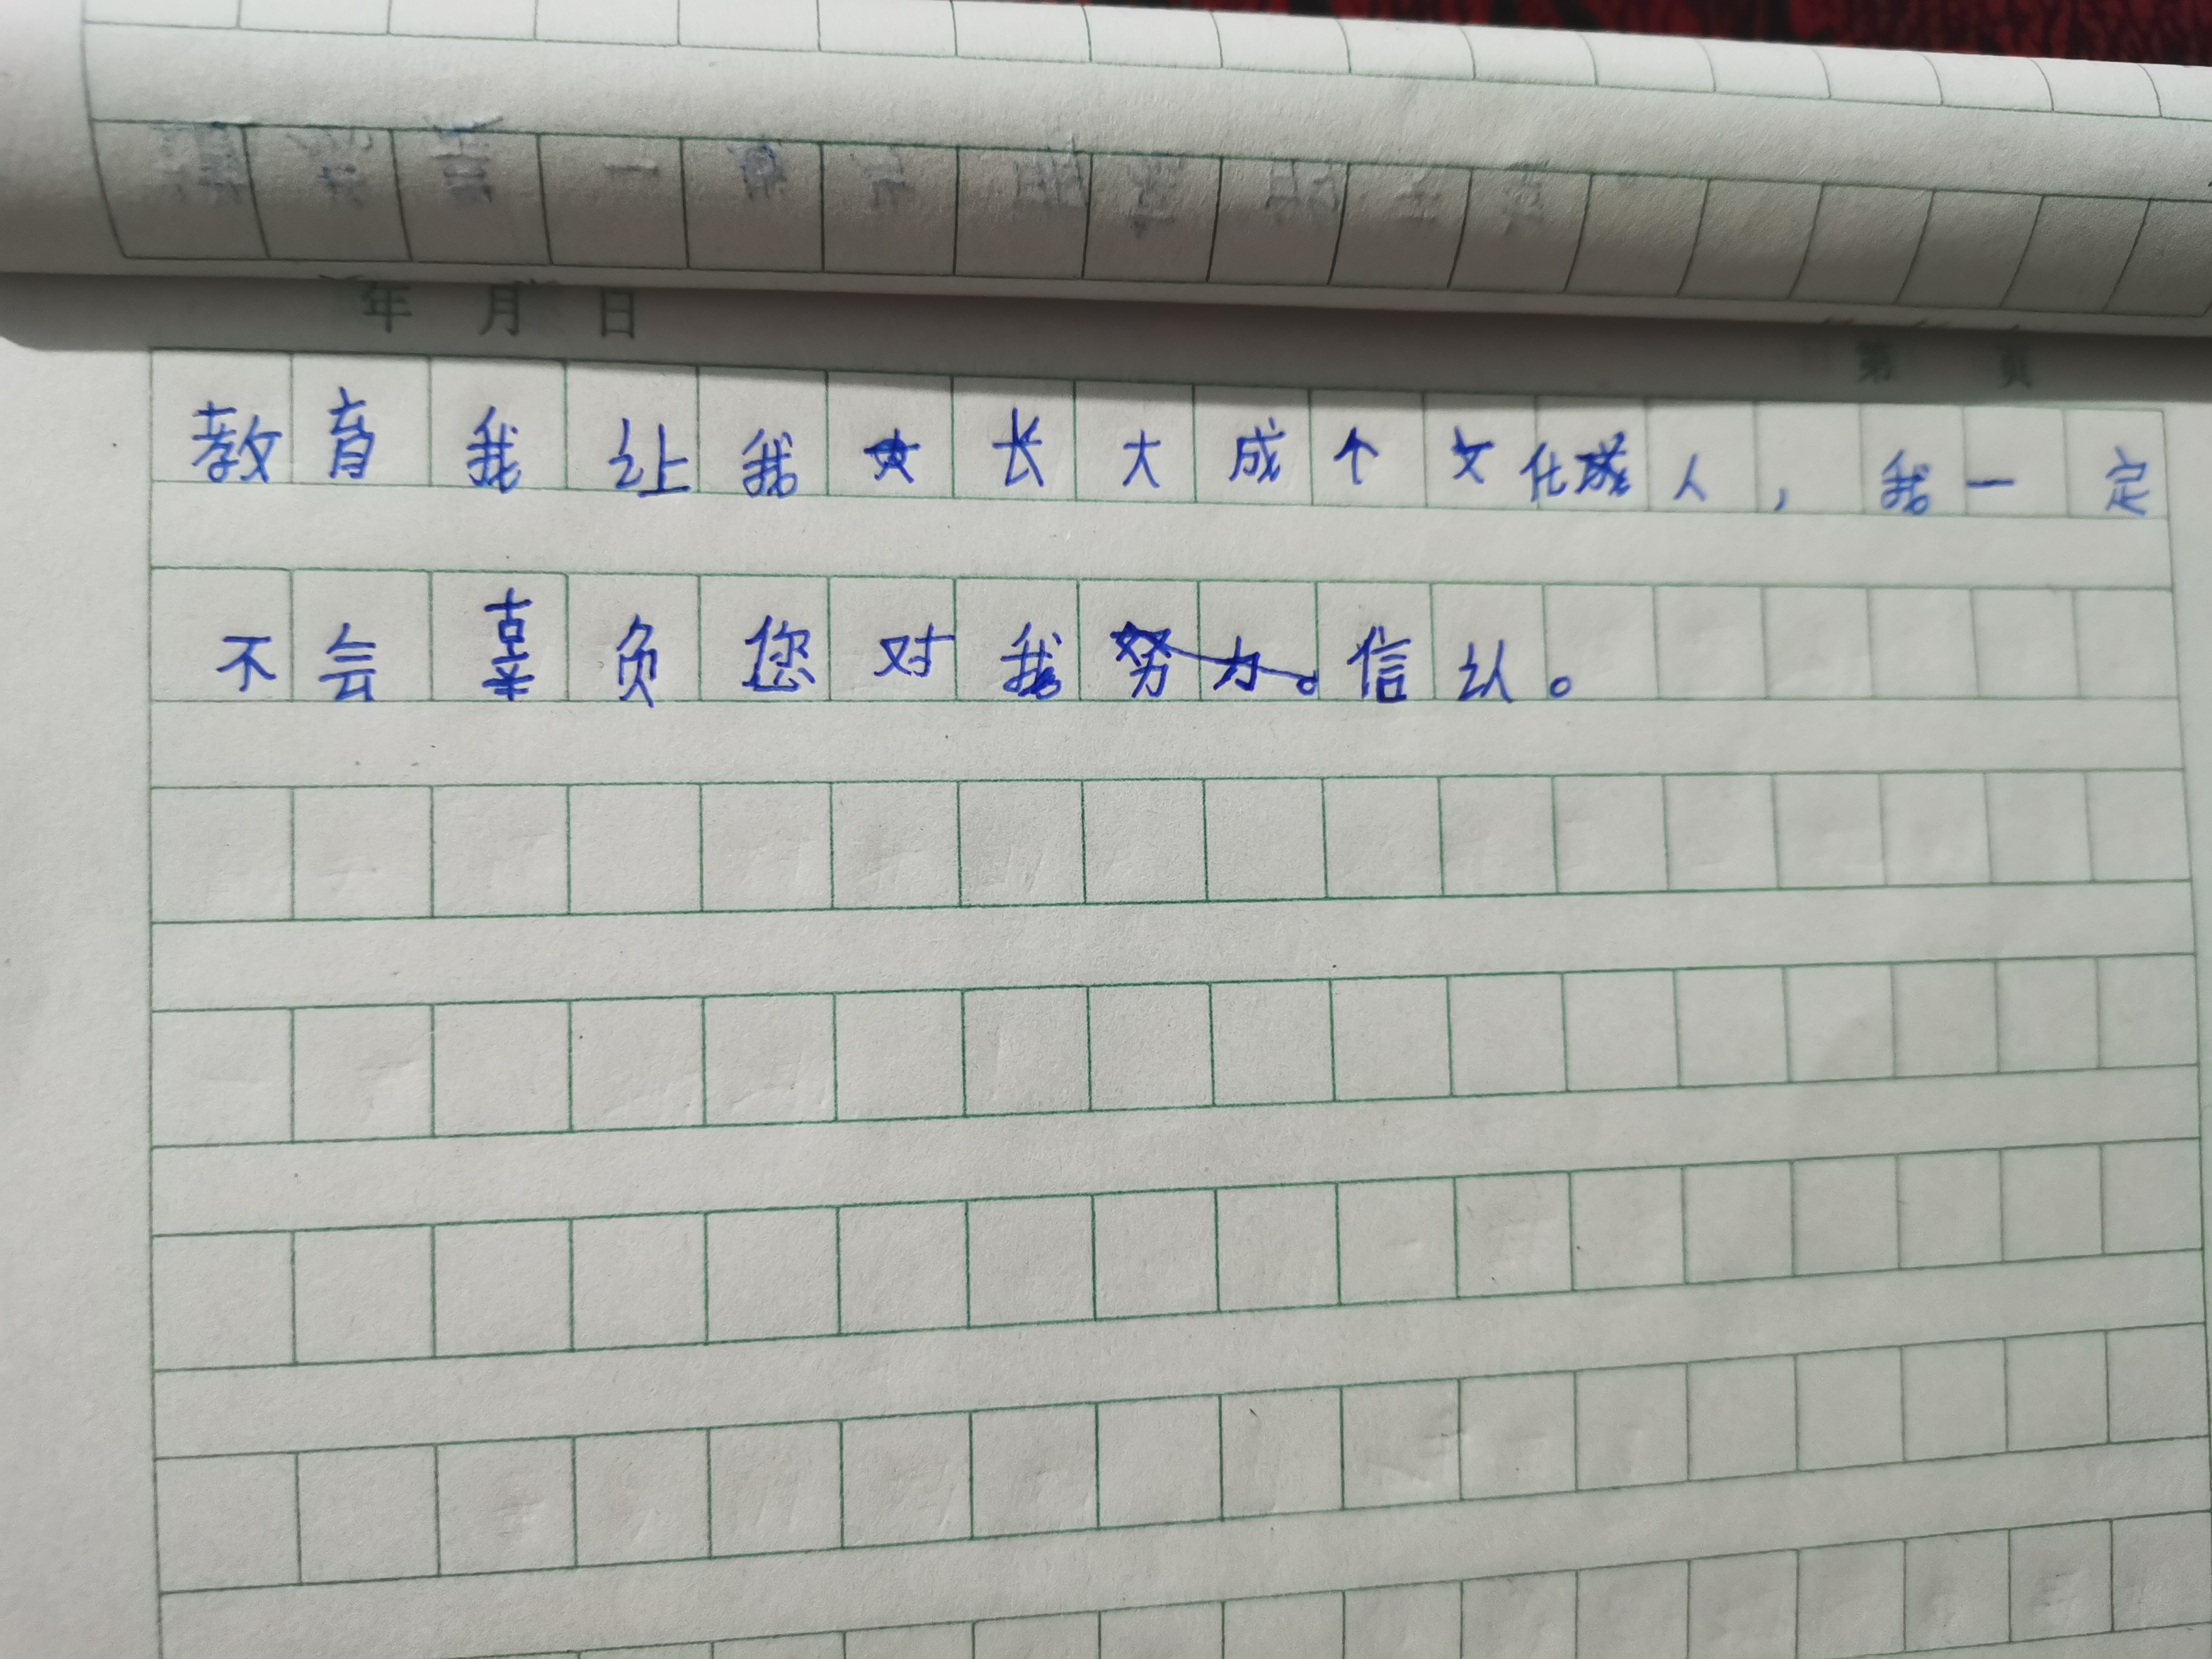 年 月 日
第 页
教育我让我长大成个文化人，我一定
不会辜负您对我信认。